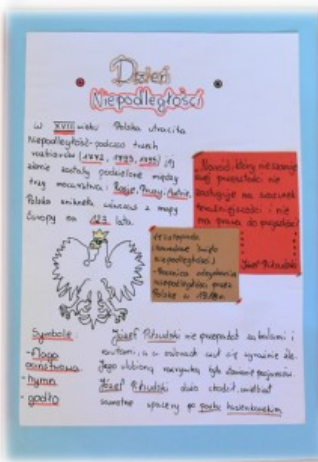 Dzień
Niepodległości
W XVIII wieku Polska utraciła
Niepodległość - podczas trzech
rozbiorów (1772, 1793, 1795) jej
ziemie zostały podzielone między
trzy mocarstwa: Rosję, Prusy, Austrię.
Polska zniknęła wówczas z mapy
Europy na 123 lata.
"Naród, który nie szanuje
swej przeszłości nie
zasługuje na szacunek
teraźniejszości i nie
ma prawa do przyszłości"
Józef Piłsudski
11 listopada
(Narodowe Święto
Niepodległości)
- Rocznica odzyskania
niepodległości przez
Polskę w 1918r.
Symbole:
- flaga
państwowa
- hymn
- godło
Józef Piłsudski nie przepadał za balami i
rautami, a w salonach czuł się wyraźnie źle.
Jego ulubioną rozrywką było stawianie pasjansów.
Józef Piłsudski dużo chodził, uwielbiał
samotne spacery po parku Łazienkowskim.